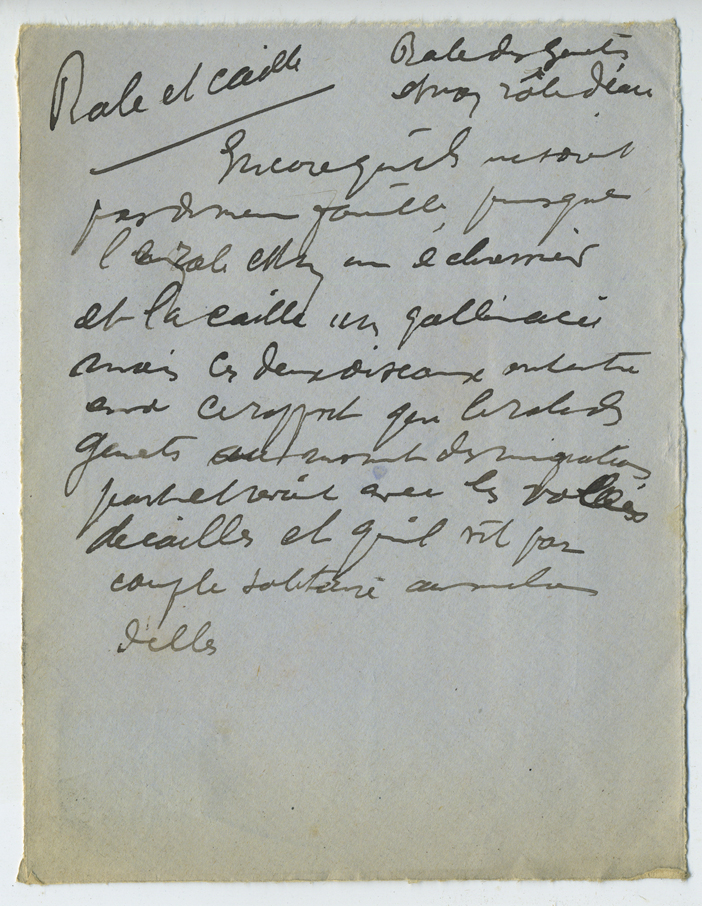 Rale et caille
Rale des Genets
et non râle d'eau
Encore qu'ils ne soient
pas de meme famille, puisque
l' rale est un échassier
et la caille un gallinacé
mais ces deux oiseaux ont entre
eux ce rapport que le rale des
genets au moment des migrations
part et revient avec les vollées
de cailles et qu'il vit par
couple solitaire au milieu
d'elles